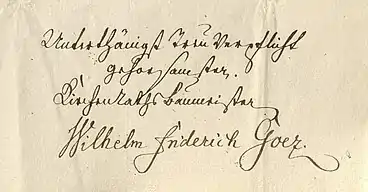 Unterthänigst Treu Verpflicht
gehorsamster.
KirchenRaths baumeister
Wilhelm friderich Goez.